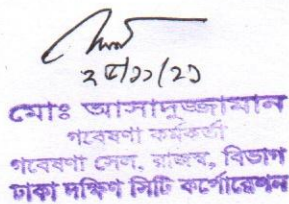 ২৫/১১/২১
মোঃ আসাদুজ্জামান
গবেষণা কর্মকর্তা
গবেষণা সেল, রাজস্ব, বিভাগ
ঢাকা দক্ষিণ সিটি কর্পোরেশন